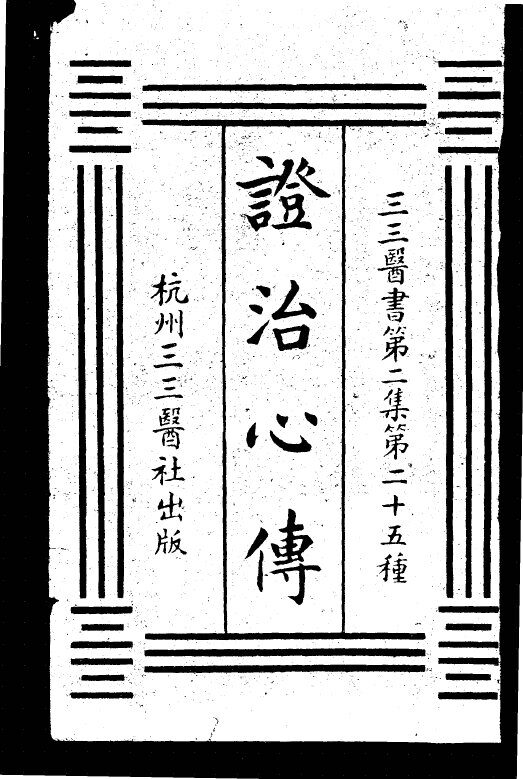 三三醫書第二集第二十五種
證治心傳
杭州三三醫社出版